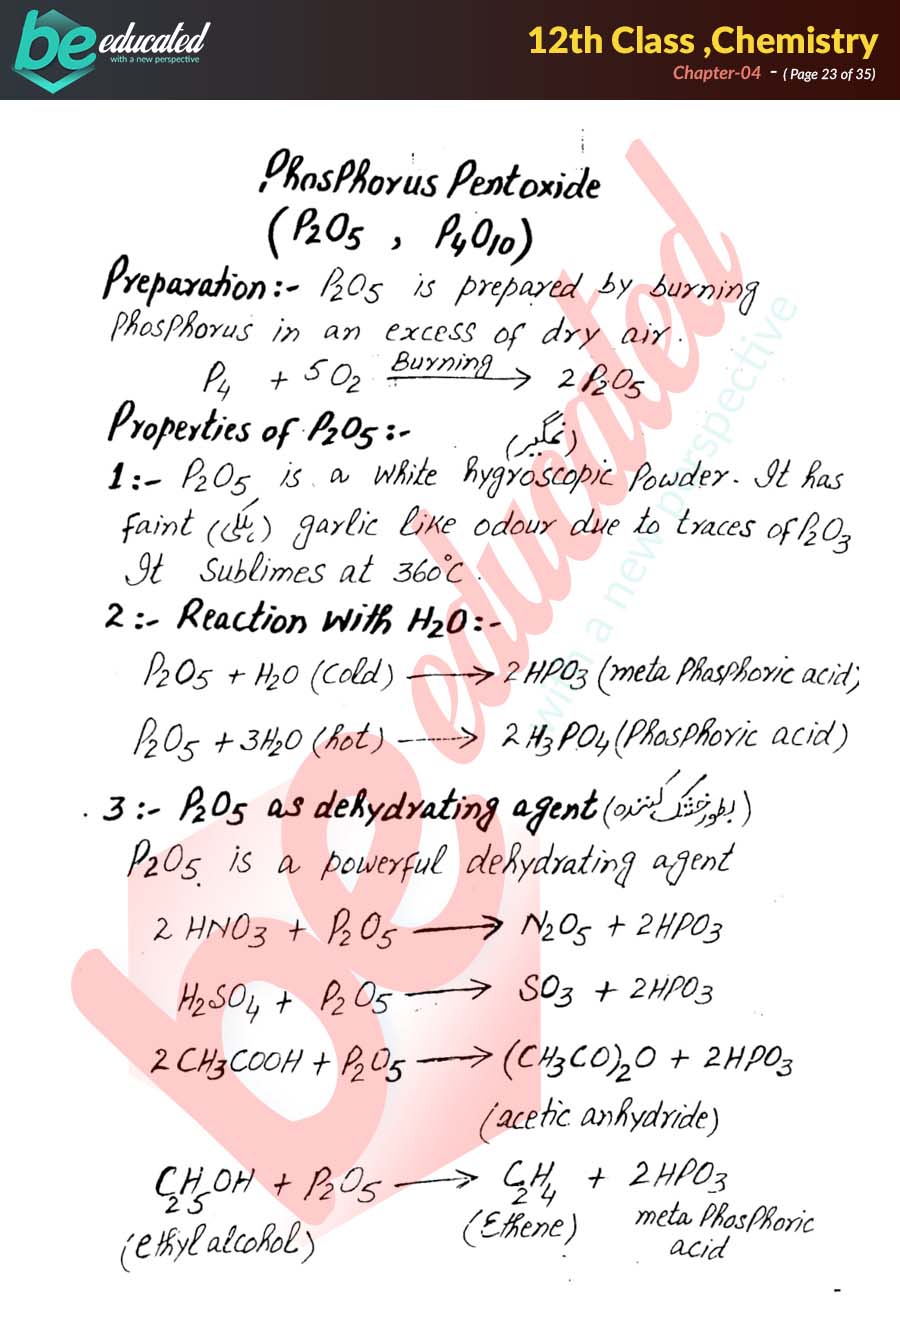 be educated
with a new perspective
12th Class ,Chemistry
Chapter-04 - ( Page 23 of 35)
Phosphorus Pentoxide
(P2O5 , P4O10)
Preparation:- P2O5 is prepared by burning
phosphorus in an excess of dry air.
P4 + 5O2 Burning → 2P2O5
Properties of P2O5:-
1:- P2O5 is a white hygroscopic Powder. It has
faint (ہلکی) garlic like odour due to traces of P2O3
It sublimes at 360°C.
2:- Reaction with H2O:-
P2O5 + H2O (cold) → 2HPO3 (meta Phosphoric acid;
P2O5 + 3H2O (hot) → 2H3PO4 (Phosphoric acid)
3:- P2O5 as dehydrating agent (بطور خشک کنندہ)
P2O5 is a powerful dehydrating agent
2 HNO3 + P2O5 → N2O5 + 2HPO3
H2SO4 + P2O5 → SO3 + 2HPO3
2 CH3COOH + P2O5 → (CH3CO)2O + 2HPO3
(acetic anhydride)
C2H5OH + P2O5 → C2H4 + 2HPO3
(ethyl alcohol) (Ethene) meta Phosphoric
acid
be educated
with a new perspective